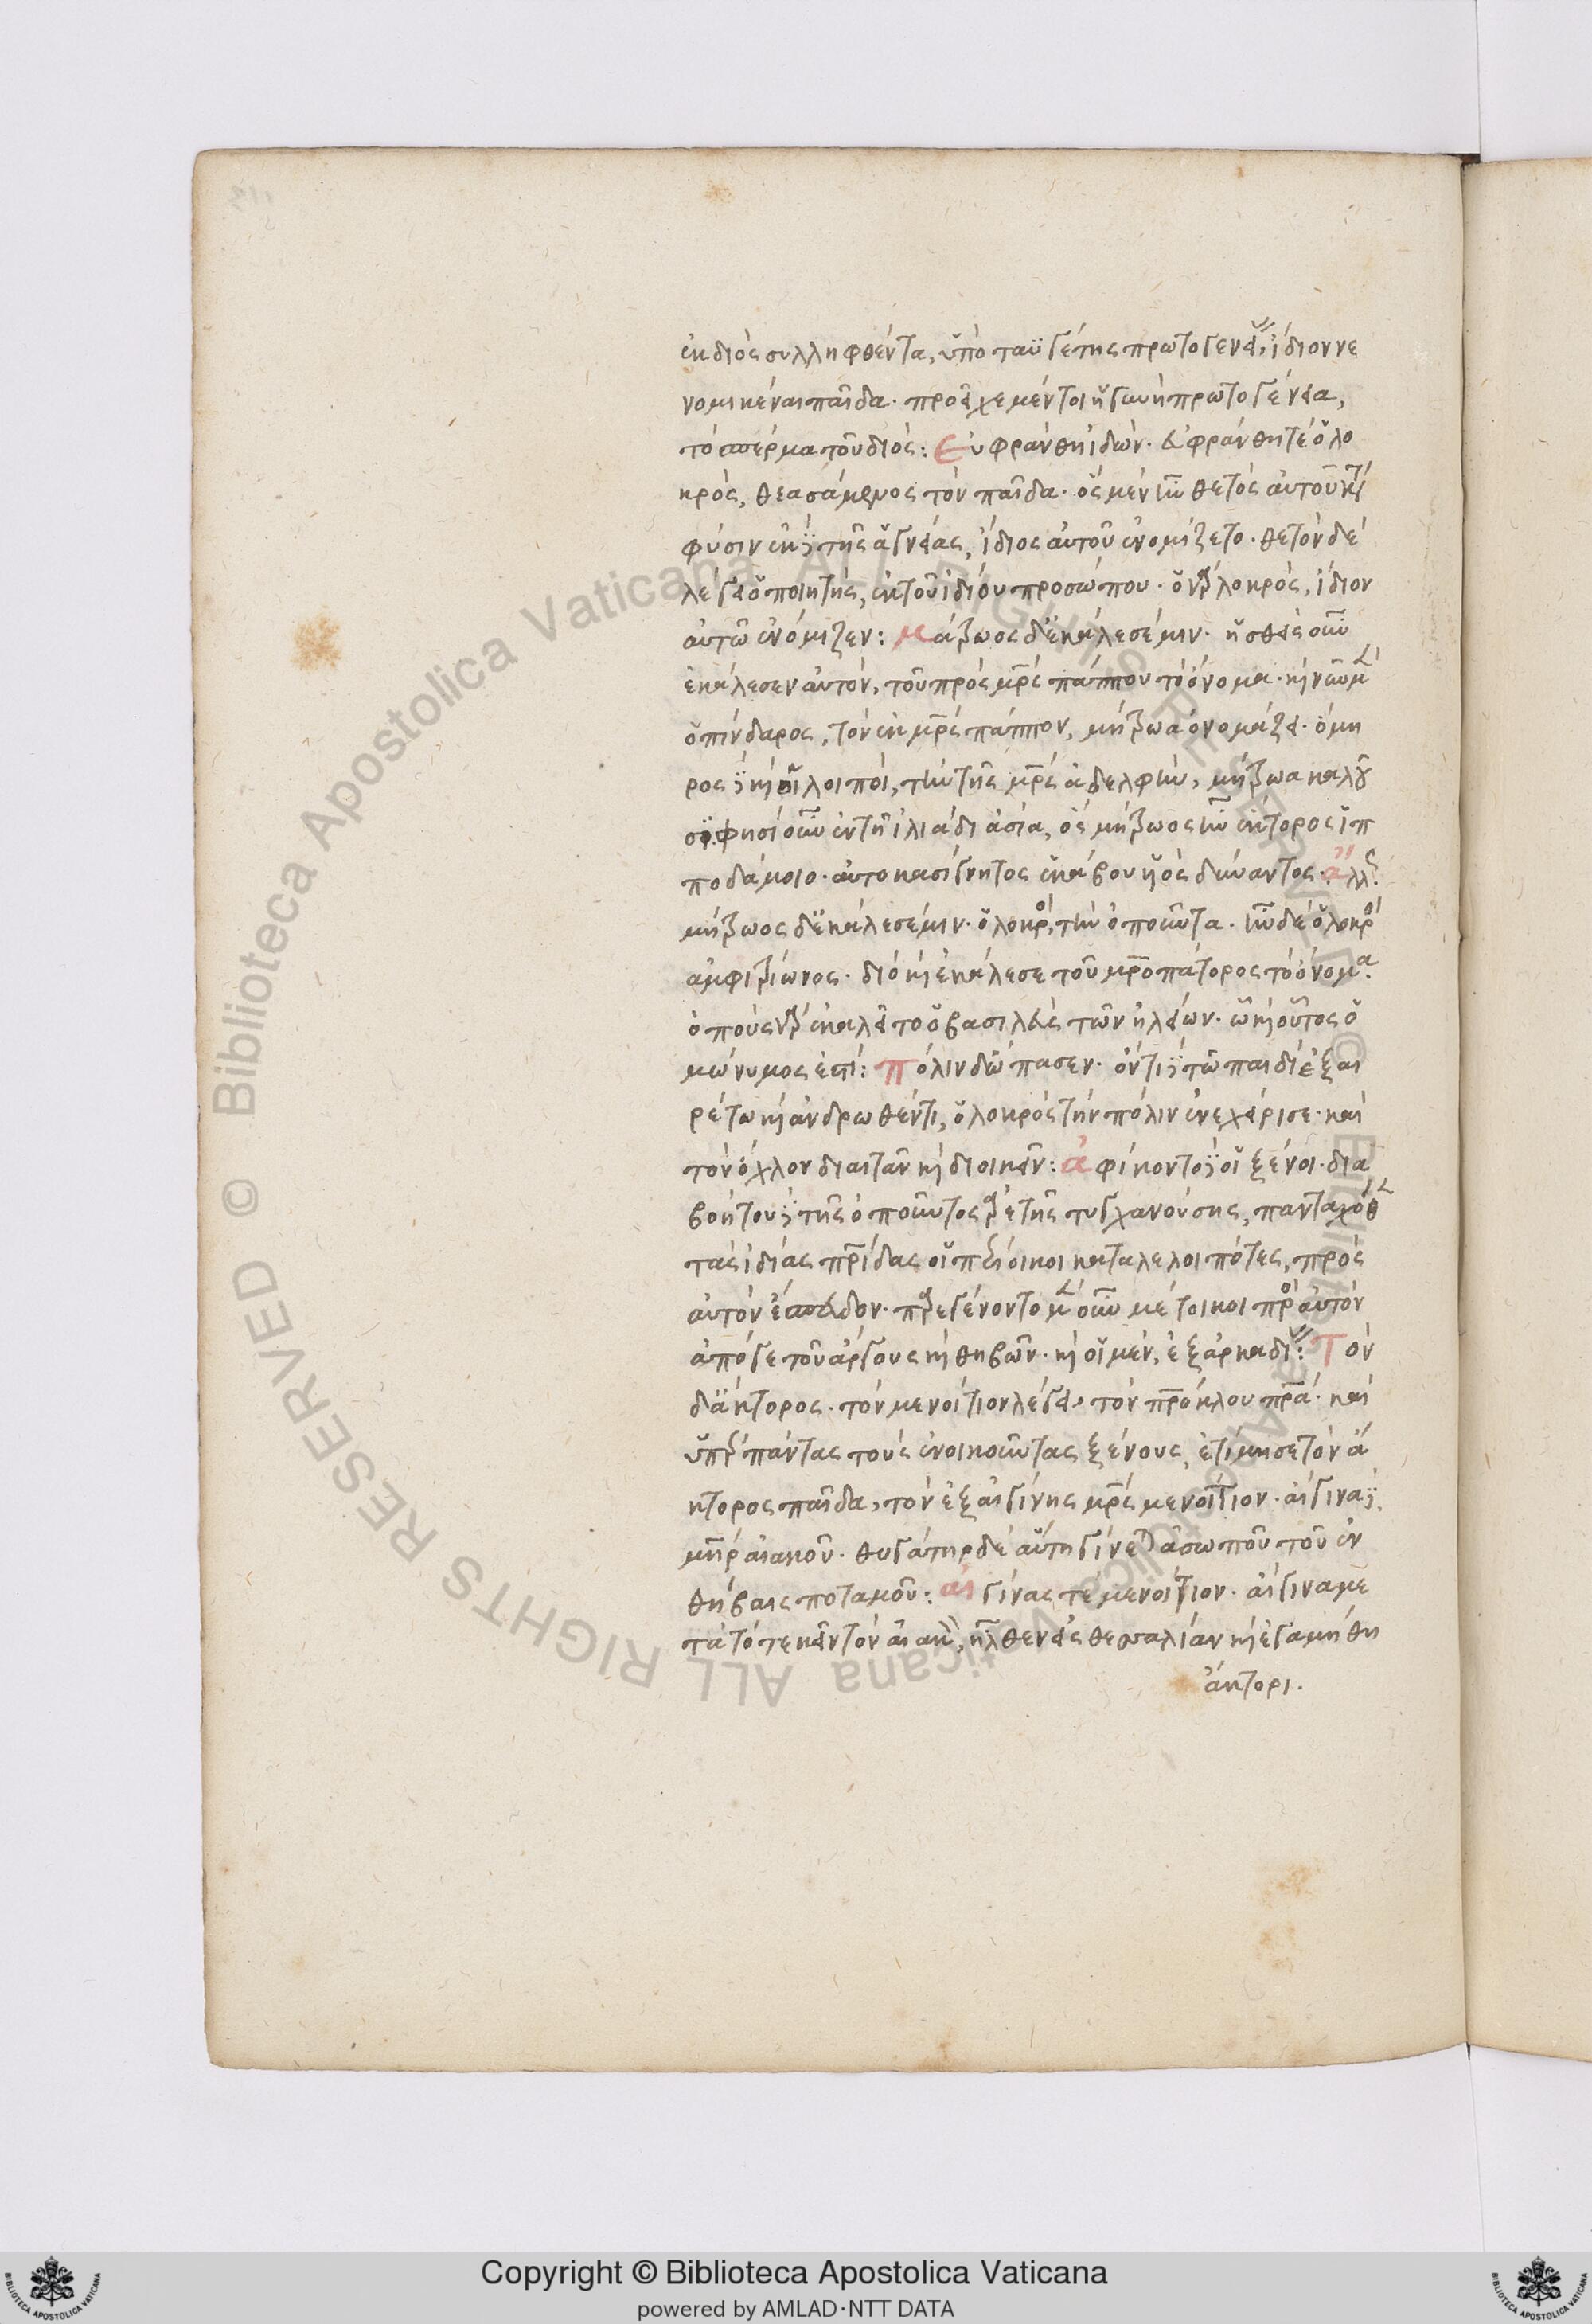 ἐκ διὸς συλληφθέντα, ὑπὸ ταϋγέτης πρωτογενείας, ἴδιον νε
νομικέναι παῖδα. προεῖχε μέντοι ἡ γυνὴ πρωτογένεια,
τὸ σπέρμα τοῦ διός: Εὐφράνθη ἰδών. εὐφράνθη τὲ ὁ λο
κρὸς, θεασάμενος τὸν παῖδα. ὃς μὲν ἦν θετὸς αὐτοῦ κατὰ
φύσιν ἐκ δὲ τῆς ἁγνείας, ἴδιος αὐτοῦ ἐνομίζετο. θετὸν δὲ
λέγει ὁ ποιητὴς, ἐκ τοῦ ἰδίου προσώπου. ὁ γὰρ λοκρὸς, ἴδιον
αὐτῶ ἐνόμιζεν: μάτρωος δ' ἐκάλεσέ μιν. ἡσθεὶς οὖν
ἐκάλεσεν αὐτὸν, τοῦ πρὸς μητρὸς πάππου τὸ ὄνομα. καὶ νῦν μὲν
ὁ πίνδαρος, τὸν ἐκ μητρὸς πάππον, μήτρωα ὀνομάζει. ὅμη
ρος δὲ καὶ οἱ λοιποὶ, τὸν τῆς μητρὸς ἀδελφὸν, μήτρωα καλοῦ
σι. φησὶ οὖν ἐν τῆ ἰλιάδι ἀσία, ὃς μήτρωος ἦν ἕκτορος ἱπ
ποδάμοιο. αὐτοκασίγνητος ἑκάβου υἱὸς δύμαντος. ἄλλως.
μήτρωος δ' ἐκάλεσέ μιν. ὁ λοκρὸς, τὸν ὀποῦντα. ἦν δὲ ὁ λοκρὸς
ἀμφιτρίωνος. διὸ καὶ ἐκάλεσε τοῦ μητροπάτορος τὸ ὄνομα.
ὀποῦς γὰρ ἐκαλεῖτο ὁ βασιλεὺς τῶν ἠλείων. ὧ καὶ οὗτος ὁ
μώνυμος ἐστί: πόλιν δ' ὤπασεν. ὄντι δὲ τῶ παιδὶ ἐξαι
ρέτω καὶ ἀνδρωθέντι, ὁ λοκρὸς τὴν πόλιν ἐνεχείρισε. καὶ
τὸν ὄχλον διαιτᾶν καὶ διοικεῖν: ἀφίκοντο δὲ οἱ ξένοι. δια
βοήτου δὲ τῆς ὀποῦντος ἀρετῆς τυγχανούσης, πανταχόθεν
τὰς ἰδίας πατρίδας οἱ περίοικοι καταλελοιπότες, πρὸς
αὐτὸν ἔσπευδον. παρεγένοντο μὲν οὖν μέτοικοι πρὸς αὐτὸν
ἀπό γε τοῦ ἄργους καὶ θηβῶν. καὶ οἱ μὲν, ἐξ ἀρκαδίας: Τὸν
δ' ἄκτορος. τὸν μενοίτιον λέγει. τὸν πατρόκλου πατέρα. καὶ
ὑπὲρ πάντας τοὺς ἐνοικοῦντας ξένους, ἐτίμησε τὸν ἄ
κτορος παῖδα, τὸν ἐξ αἰγίνης μητρὸς μενοίτιον. αἴγινα δὲ
μήτηρ αἰακοῦ. θυγάτηρ δὲ αὕτη γίνεται ἀσωποῦ τοῦ ἐν
θήβαις ποταμοῦ: αἰγίνας τὲ μενοίτιον. αἴγινα με
τὰ τὸ τεκεῖν τὸν αἰακὸν, ἦλθεν εἰς θεσσαλίαν καὶ ἐγαμήθη
ἄκτορι.